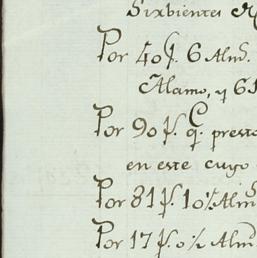 Sirvientes
Por 40 f. 6 Alms.
Alamo, y 6
Por 90 f. q. presto
en este cuyo
Por 81 f. 10½ Alms
Por 17 f. 0½ Alm